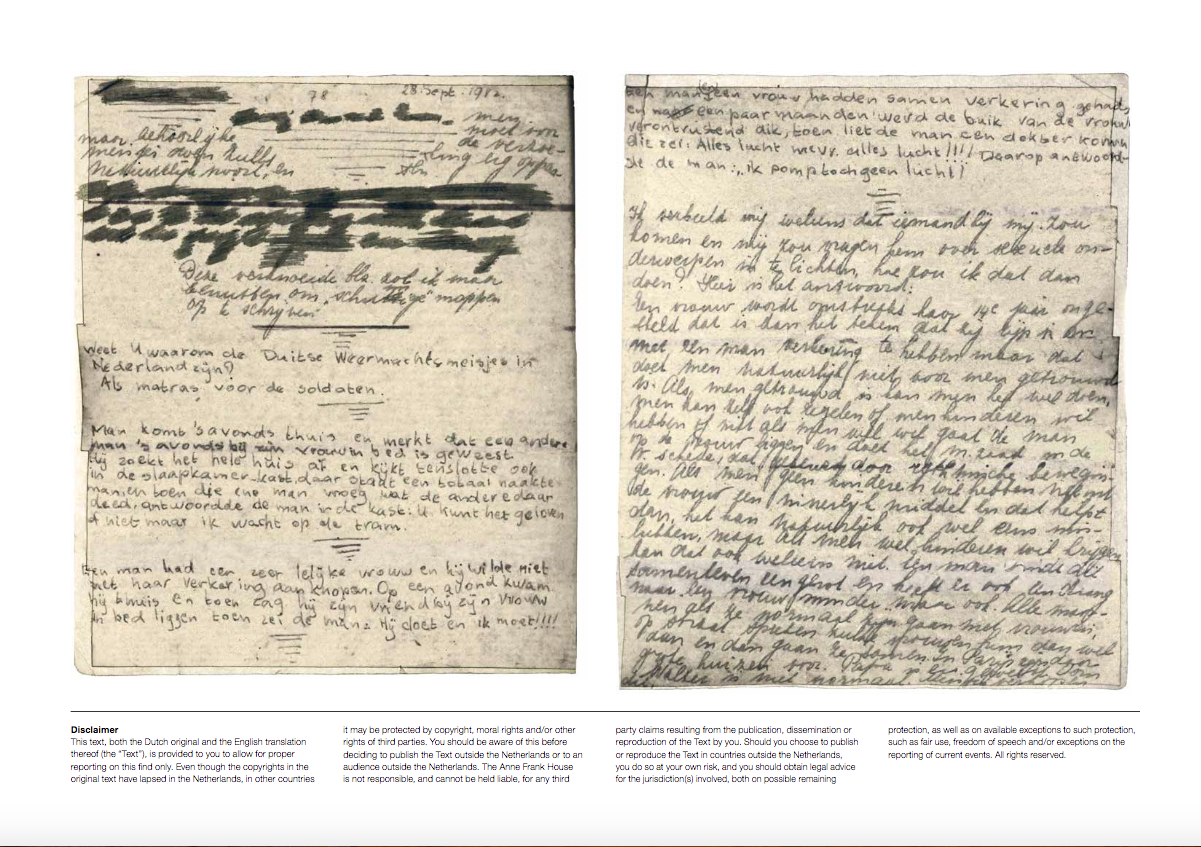 78 28. Sept. 1942.
men
maar. behoorlijke moet voor
de
Natuurlijk nooit, en
Deze bla. zal ik maar
benutten om "schuttige" moppen
op te schrijven.
Weet U waarom de Duitse Weermachtsmeisjes in
Nederland zijn?
Als matras voor de soldaten.
Man komt 's avonds thuis en merkt dat een andere
man 's avonds bij zijn vrouw in bed is geweest.
Hij zoekt het hele huis af en kijkt tenslotte ook
in de slaapkamer-kast, daar staat een totaal naakte
man, en toen die ene man vroeg wat de andere daar
deed, antwoordde de man in de kast: U kunt het geloven
of niet maar ik wacht op de tram.
Een man had een zeer lelijke vrouw en hij wilde niet
met haar verkering aanknopen. Op een avond kwam
hij thuis en toen zag hij zijn vriend bij zijn vrouw
in bed liggen toen zei de man: Hij doet en ik moet!!!!
een man een vrouw hadden samen verkering gehad,
en na een paar maanden werd de buik van de vrouw
verontrustend dik, toen liet de man een dokter komen
die zei: Alles lucht mevr. alles lucht!!!! Daarop antwoord-
de de man: „ik pomp toch geen lucht!
Ik verbeeld mij weleens dat iemand bij mij zou
komen en mij zou vragen hem over sexuele on-
derwerpen in te lichten, hoe zou ik dat dan
doen? Hier is het antwoord:
Een vrouw wordt omstreeks haar 14e jaar onge-
steld dat is dan het teken dat zij rijp is om
met een man verkering te hebben maar dat
doet men natuurlijk niet voor men getrouwd
is. Als men getrouwd is kan men het wel doen,
men kan zelf ook regelen of men kinderen wil
hebben of niet als men wil gaat de man
op de vrouw liggen en doet het zaad in de
schede, dat door rythmische bewegin-
gen. Als men geen kinderen wil hebben neemt
de vrouw een innerlijk middel en dat helpt
dan, het kan natuurlijk ook wel eens mis-
lukken, maar als men wel kinderen wil krijgen
kan dat ook weleens niet. Een man vindt dit
samenleven een genot en heeft er ook en drang
naar een vrouw minder maar ook. Alle man-
nen als ze normaal zijn gaan met vrouwen,
op straat spreken hulle vrouwen hun dan wel
aan en dan gaan ze samen. in Parijs zijn daar
grote huizen voor. Papa is er geweest. Oom
Walter is niet normaal.
Disclaimer
This text, both the Dutch original and the English translation
thereof (the “Text”), is provided to you to allow for proper
reporting on this find only. Even though the copyrights in the
original text have lapsed in the Netherlands, in other countries
it may be protected by copyright, moral rights and/or other
rights of third parties. You should be aware of this before
deciding to publish the Text outside the Netherlands or to an
audience outside the Netherlands. The Anne Frank House
is not responsible, and cannot be held liable, for any third
party claims resulting from the publication, dissemination or
reproduction of the Text by you. Should you choose to publish
or reproduce the Text in countries outside the Netherlands,
you do so at your own risk, and you should obtain legal advice
for the jurisdiction(s) involved, both on possible remaining
protection, as well as on available exceptions to such protection,
such as fair use, freedom of speech and/or exceptions on the
reporting of current events. All rights reserved.